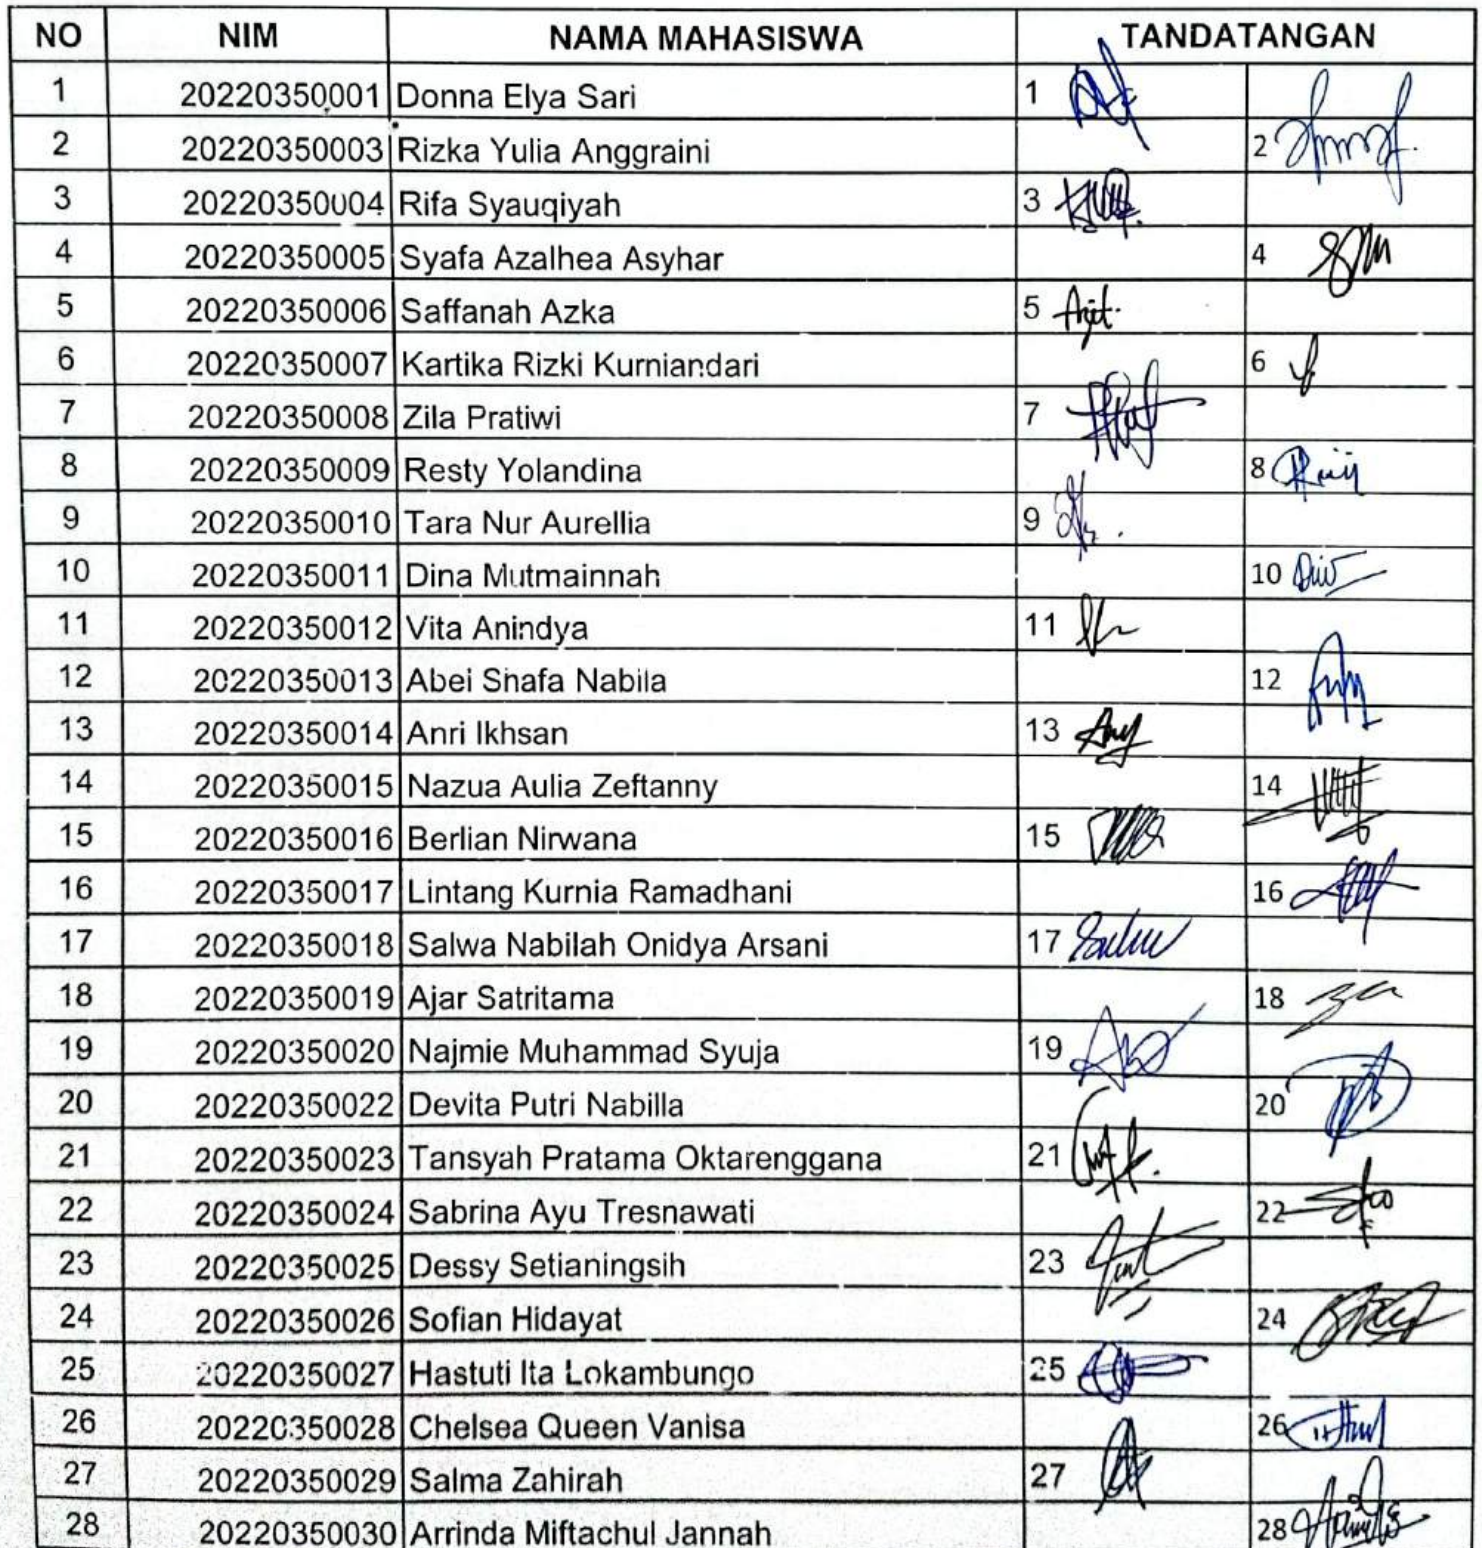 NO NIM NAMA MAHASISWA TANDATANGAN
1 20220350001 Donna Elya Sari 1
2 20220350003 Rizka Yulia Anggraini 2
3 20220350004 Rifa Syauqiyah 3
4 20220350005 Syafa Azalhea Asyhar 4
5 20220350006 Saffanah Azka 5
6 20220350007 Kartika Rizki Kurniandari 6
7 20220350008 Zila Pratiwi 7
8 20220350009 Resty Yolandina 8
9 20220350010 Tara Nur Aurellia 9
10 20220350011 Dina Mutmainnah 10
11 20220350012 Vita Anindya 11
12 20220350013 Abei Shafa Nabila 12
13 20220350014 Anri Ikhsan 13
14 20220350015 Nazua Aulia Zeftanny 14
15 20220350016 Berlian Nirwana 15
16 20220350017 Lintang Kurnia Ramadhani 16
17 20220350018 Salwa Nabilah Onidya Arsani 17
18 20220350019 Ajar Satritama 18
19 20220350020 Najmie Muhammad Syuja 19
20 20220350022 Devita Putri Nabilla 20
21 20220350023 Tansyah Pratama Oktarenggana 21
22 20220350024 Sabrina Ayu Tresnawati 22
23 20220350025 Dessy Setianingsih 23
24 20220350026 Sofian Hidayat 24
25 20220350027 Hastuti Ita Lokambungo 25
26 20220350028 Chelsea Queen Vanisa 26
27 20220350029 Salma Zahirah 27
28 20220350030 Arrinda Miftachul Jannah 28